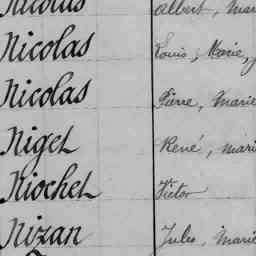 Nicolas Albert, Mari
Nicolas Louis, Marie, J
Nicolas Pierre, Marie
Niget René, mari
Niochet Victor
Nizan Jules, Marie